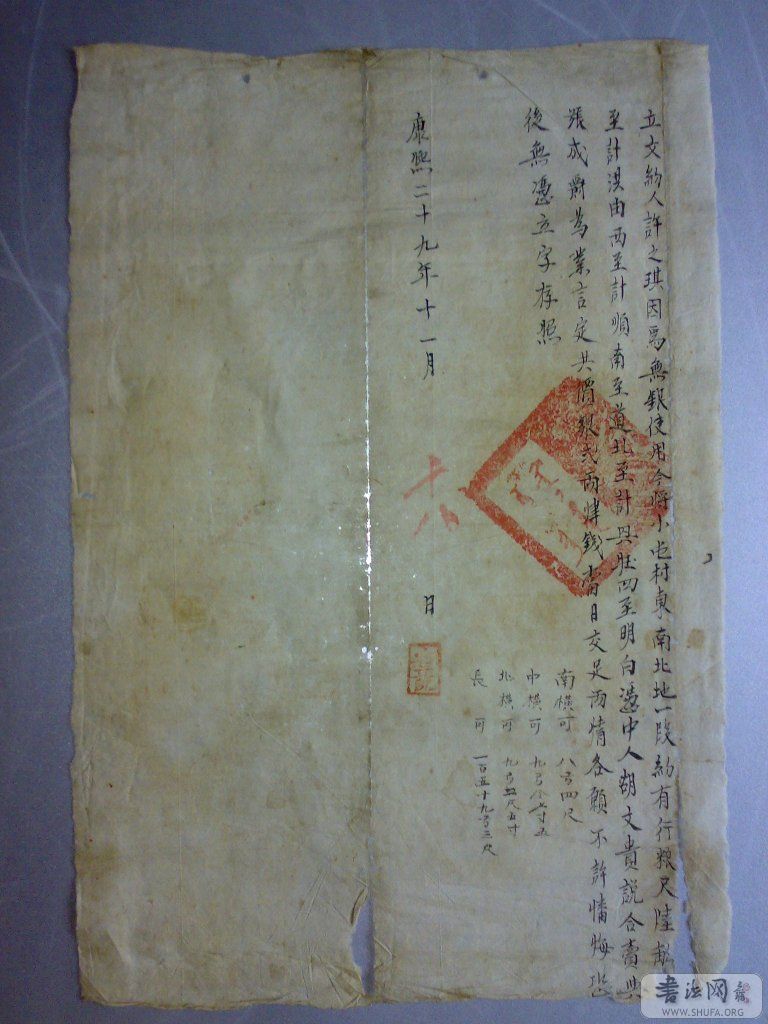 立文約人許之琪因為無銀使用今將小屯村東南北地一段約有行粮尺陸畝
至計淇由西至計順南至道北至計興旺四至明白憑中人胡文貴說合賣與
張成爵為業言定共價銀弍兩律錢當日交足兩情各願不許憣悔恐
後無憑立字存照
南橫可 八弓四尺
中橫可 九弓
北橫可 九弓 尺五寸
長可 一百五十九弓三尺
康熙二十九年十一月 日
十八
書法网
WWW.SHUFA.ORG